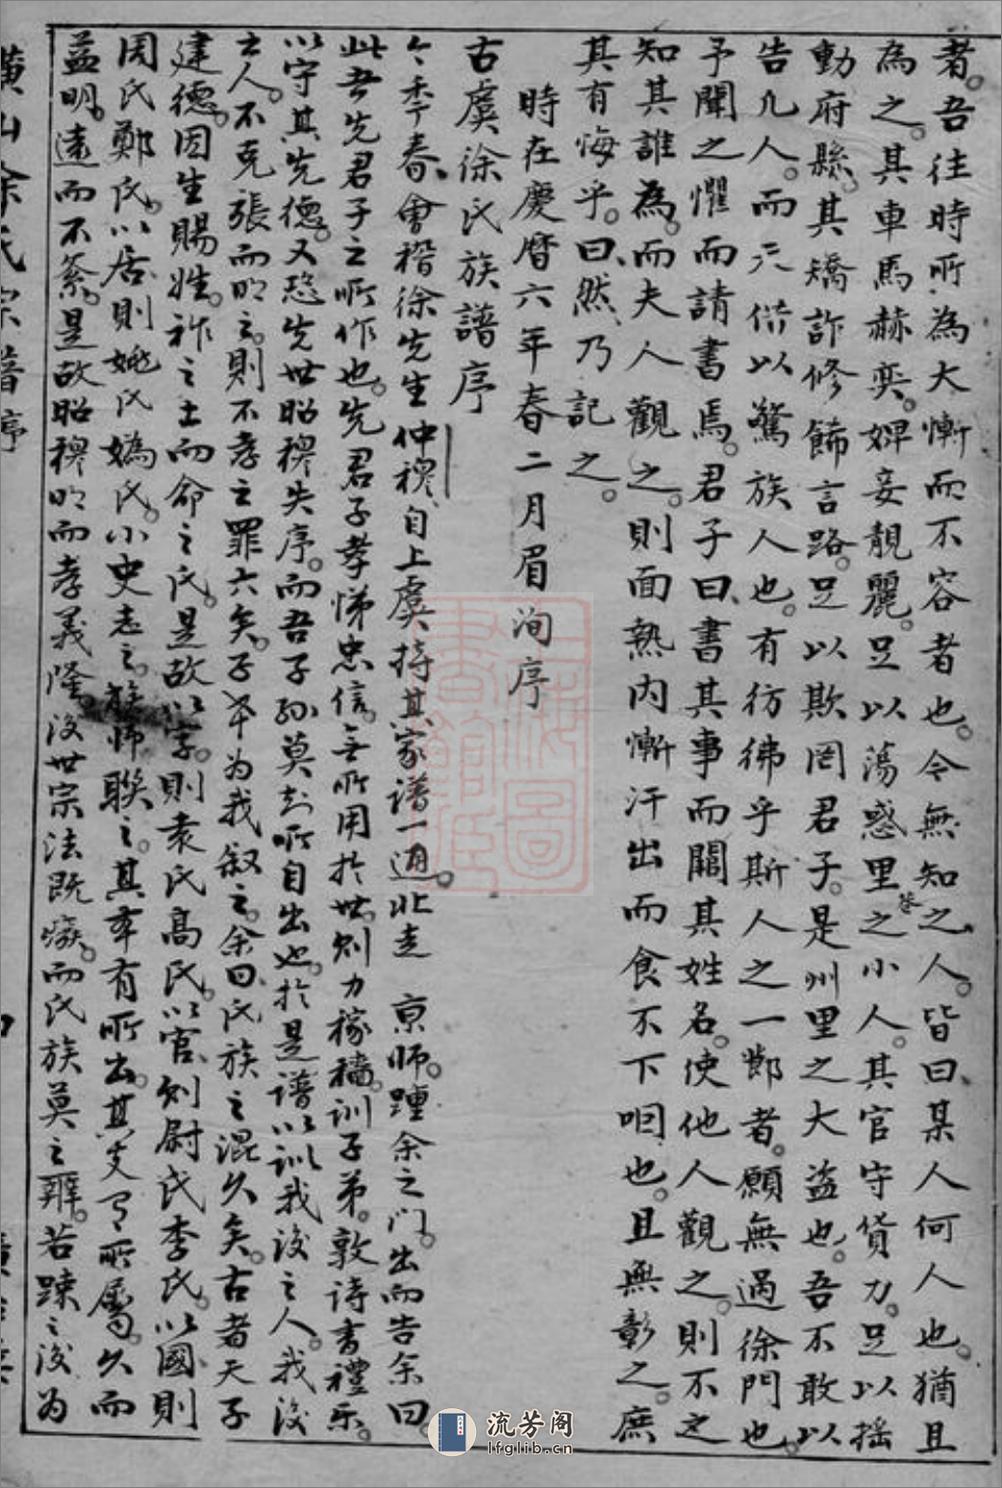 者。吾往時所為大慚而不容者也。令無知之人。皆曰某人何人也。猶且
為之。其車馬赫奕。婢妾靚麗。足以蕩惑里巷之小人。其官守貨力。足以搖
動府縣。其矯詐修飾言路。足以欺罔君子。是州里之大盜也。吾不敢以
告凡人。而以驚族人也。有彷彿乎斯人之一鄙者。願無過徐門也。
予聞之懼而請書焉。君子曰、書其事而闕其姓名。使他人觀之。則不之
知其誰為。而夫人觀之。則面熱內慚汗出而食不下咽也。且無彰之。庶
其有悔乎。曰、然、乃記之。
時在慶曆六年春二月眉洵序
古虞徐氏族譜序
今季春、會稽徐先生仲穆、自上虞持其家譜一通。北走 京師。踵余之門。出而告余曰。
此吾先君子之所作也。先君子孝悌忠信。無所用於世。則力稼穡。訓子弟。敦詩書禮樂。
以守其先德。又恐先世昭穆失序。而吾子孫莫知所自出也。於是譜以訓我後之人。我後
之人。不克張而明之。則不孝之罪大矣。子幸為我叙之。余曰、氏族之混久矣。古者天子
建德。因生賜姓。祚之土而命之氏。是故以字。則袁氏高氏。以官、則尉氏李氏。以國則
周氏鄭氏。以居則姚氏嬀氏。小史志之。族師聯之。其本有所出。其支有所屬。久而
益明。遠而不紊。是故昭穆明而孝義隆。後世宗法既廢。而氏族莫之辨。若踈之後為
橫山徐氏宗譜序
流芳阁
lfglib.cn